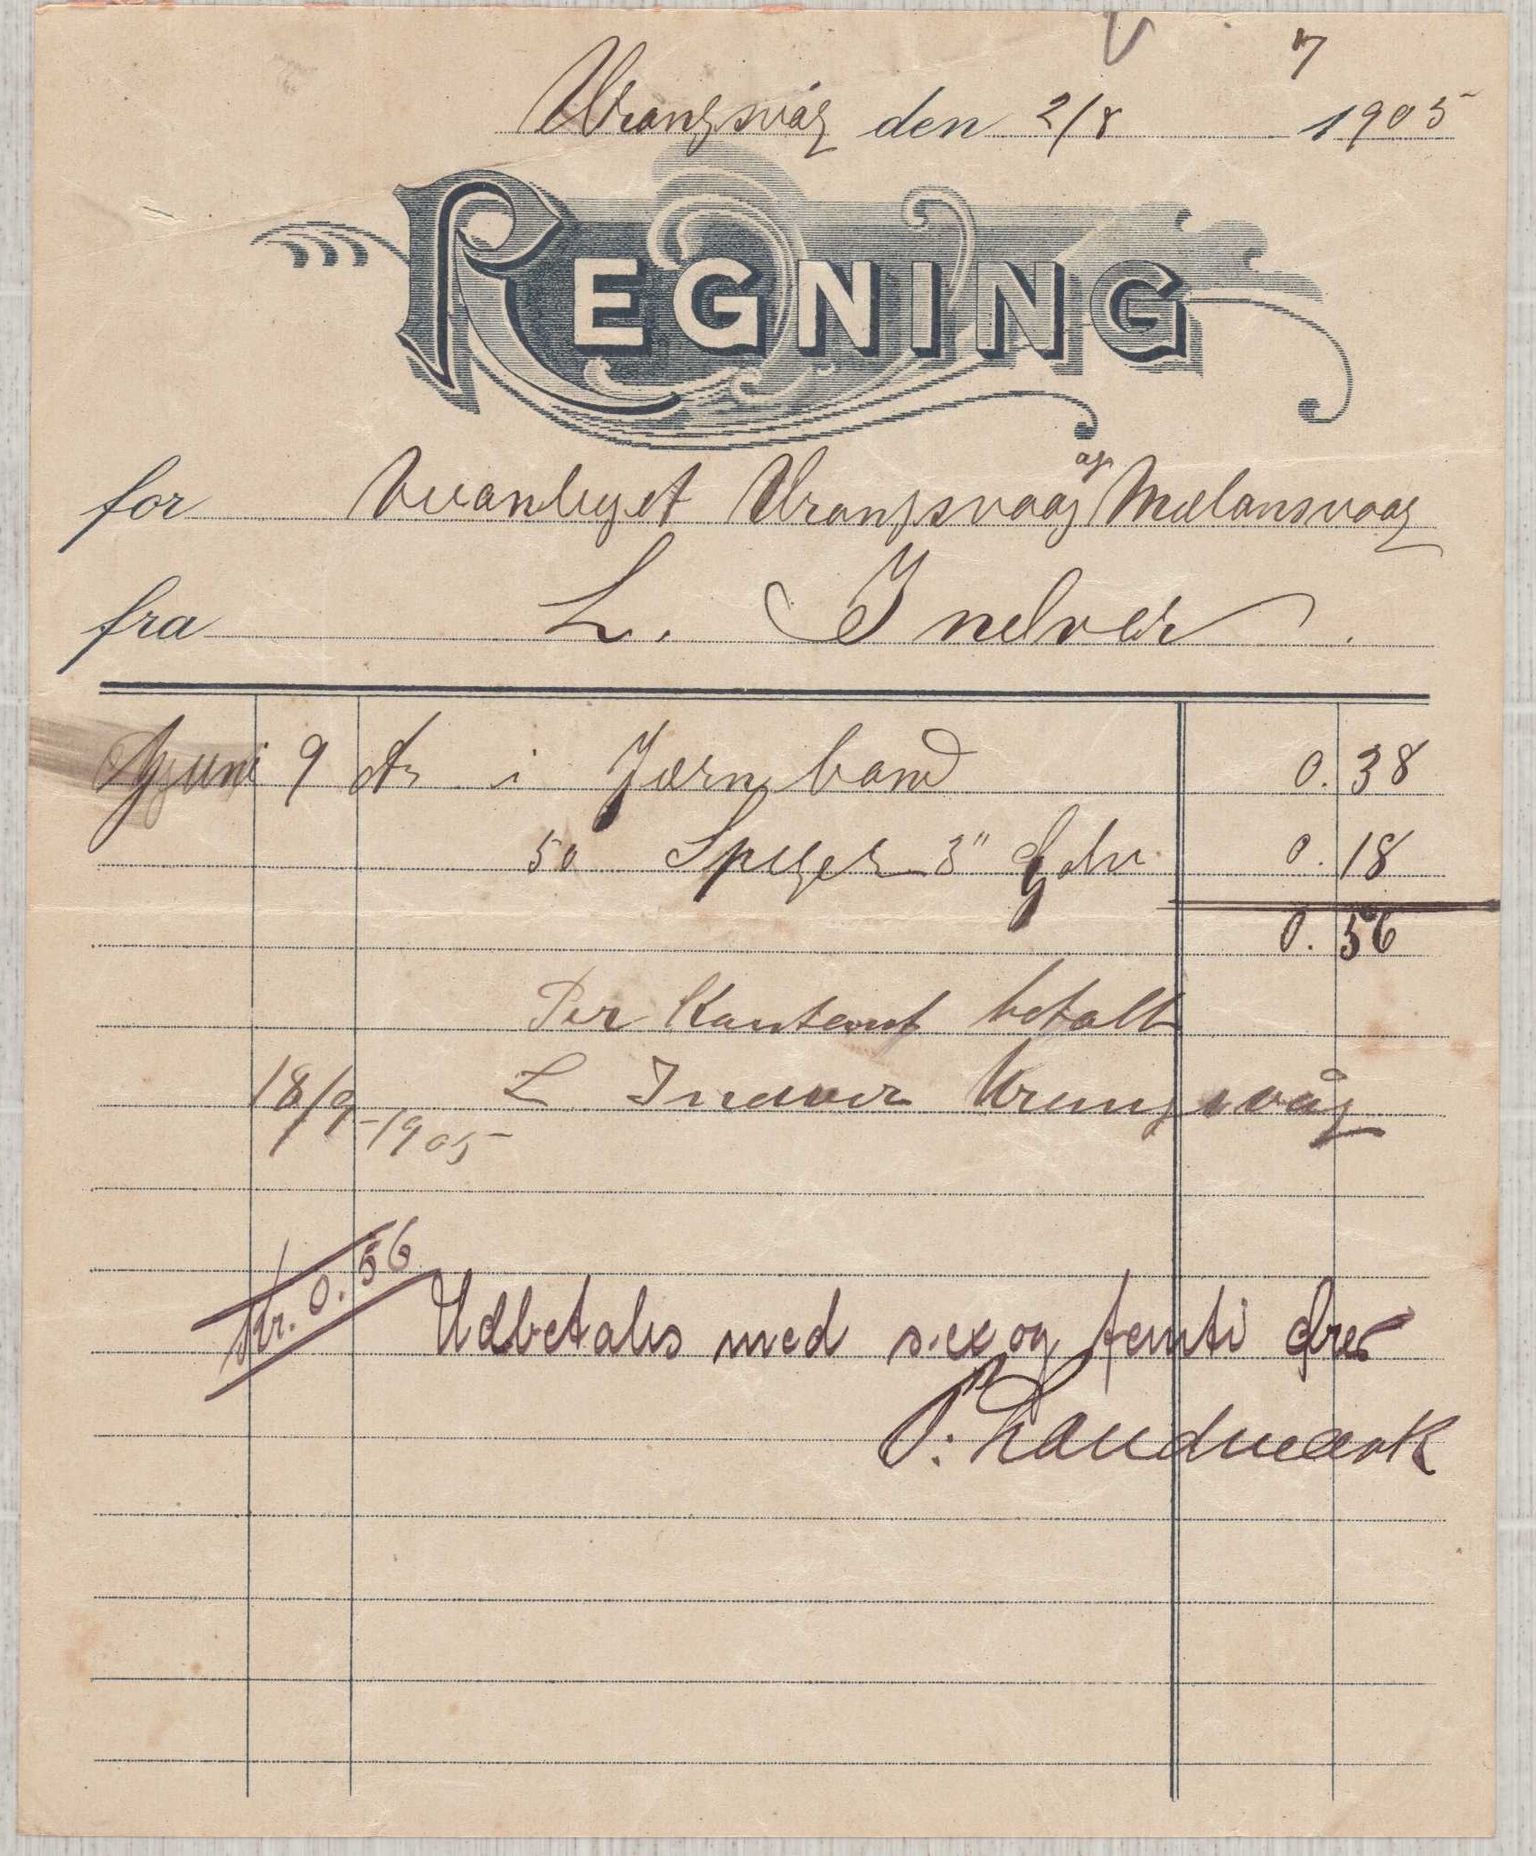 7
Vrangsvåg den 2/8 1905
REGNING
for Veianlæget Vrangsvaag og Melansvaag
fra L. Indvær.
Juni 9 At i Jærnband 0.38
50 Spiger 3" Galv. 0.18
0.56
Per Kontant betalt
18/9-1905 L Indvær Vrangsvåg
Kr. 0.56 Udbetales med sex og femti ører
P. Landmark